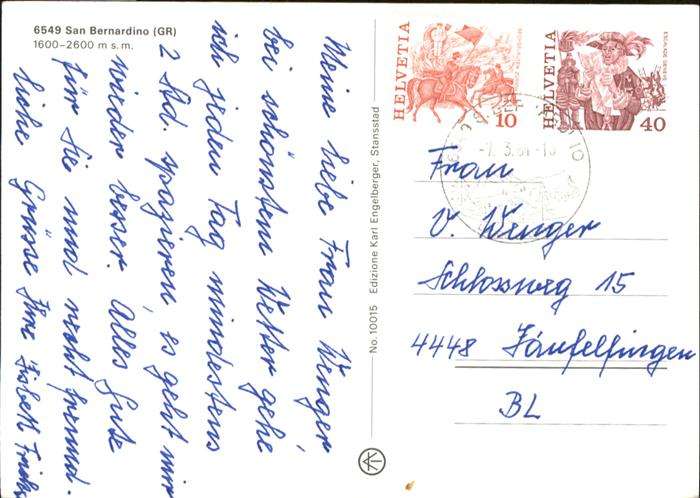 6549 San Bernardino (GR)
1600-2600 m s. m.
Meine liebe Frau Wenger
bei schönstem Wetter gehe
ich jeden Tag mindestens
2 Std. spazieren, es geht mir
wieder besser. Alles Gute
für Sie und
liebe Grüsse Ihre Lisbeth
No. 10015 Edizione Karl Engelberger, Stansstad
HELVETIA
10
HELVETIA
ESCALADE GENÈVE
40
Frau
V. Wenger
Schlossweg 15
4448 Läufelfingen
BL